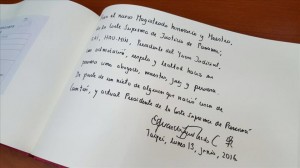 Para el nuevo Magistrado honorario y Maestro,
de la Corte Suprema de Justicia de Panamá,
HAU-MIN, Presidente del Yuan Judicial,
con admiración, respeto y lealtad hacia su
persona como abogado, maestro, juez y persona
De parte de un nieto de alguien que nació cerca de
y actual Presidente de la Corte Suprema de Panamá
Taipei, lunes 13, junio, 2016